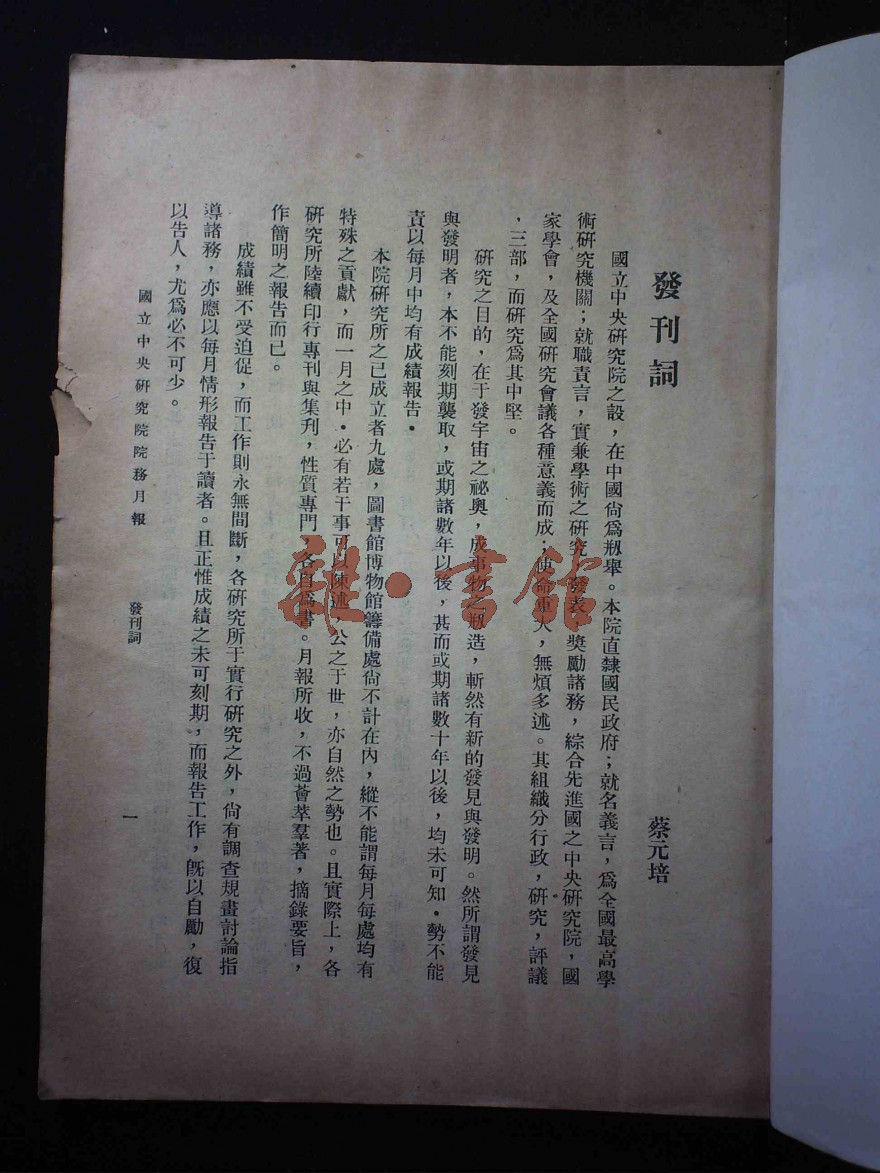 發刊詞
蔡元培
國立中央硏究院之設，在中國尙爲剏舉。本院直隸國民政府；就名義言，爲全國最高學
術硏究機關；就職責言，實兼學術之硏究，發表，奬勵諸務，綜合先進國之中央硏究院，國
家學會，及全國硏究會議各種意義而成；使命重大，無煩多述。其組織分行政，硏究，評議
，三部，而硏究爲其中堅。
硏究之目的，在于發宇宙之祕奧，成事物之剏造，斬然有新的發見與發明。然所謂發見
與發明者，本不能刻期襲取，或期諸數年以後，甚而或期諸數十年以後，均未可知・勢不能
責以每月中均有成績報告・
本院硏究所之已成立者九處，圖書館博物館籌備處尙不計在內，縱不能謂每月每處均有
特殊之貢獻，而一月之中・必有若干事可以陳述，公之于世，亦自然之勢也。且實際上，各
硏究所陸續印行專刊與集刋，性質專門，各自爲書。月報所收，不過薈萃羣著，摘錄要旨，
作簡明之報告而已。
成績雖不受迫促，而工作則永無間斷，各硏究所于實行硏究之外，尙有調查規畫討論指
導諸務，亦應以每月情形報告于讀者。且正惟成績之未可刻期，而報告工作，旣以自勵，復
以告人，尤爲必不可少。
國立中央硏究院院務月報 發刊詞 一
雜・書館